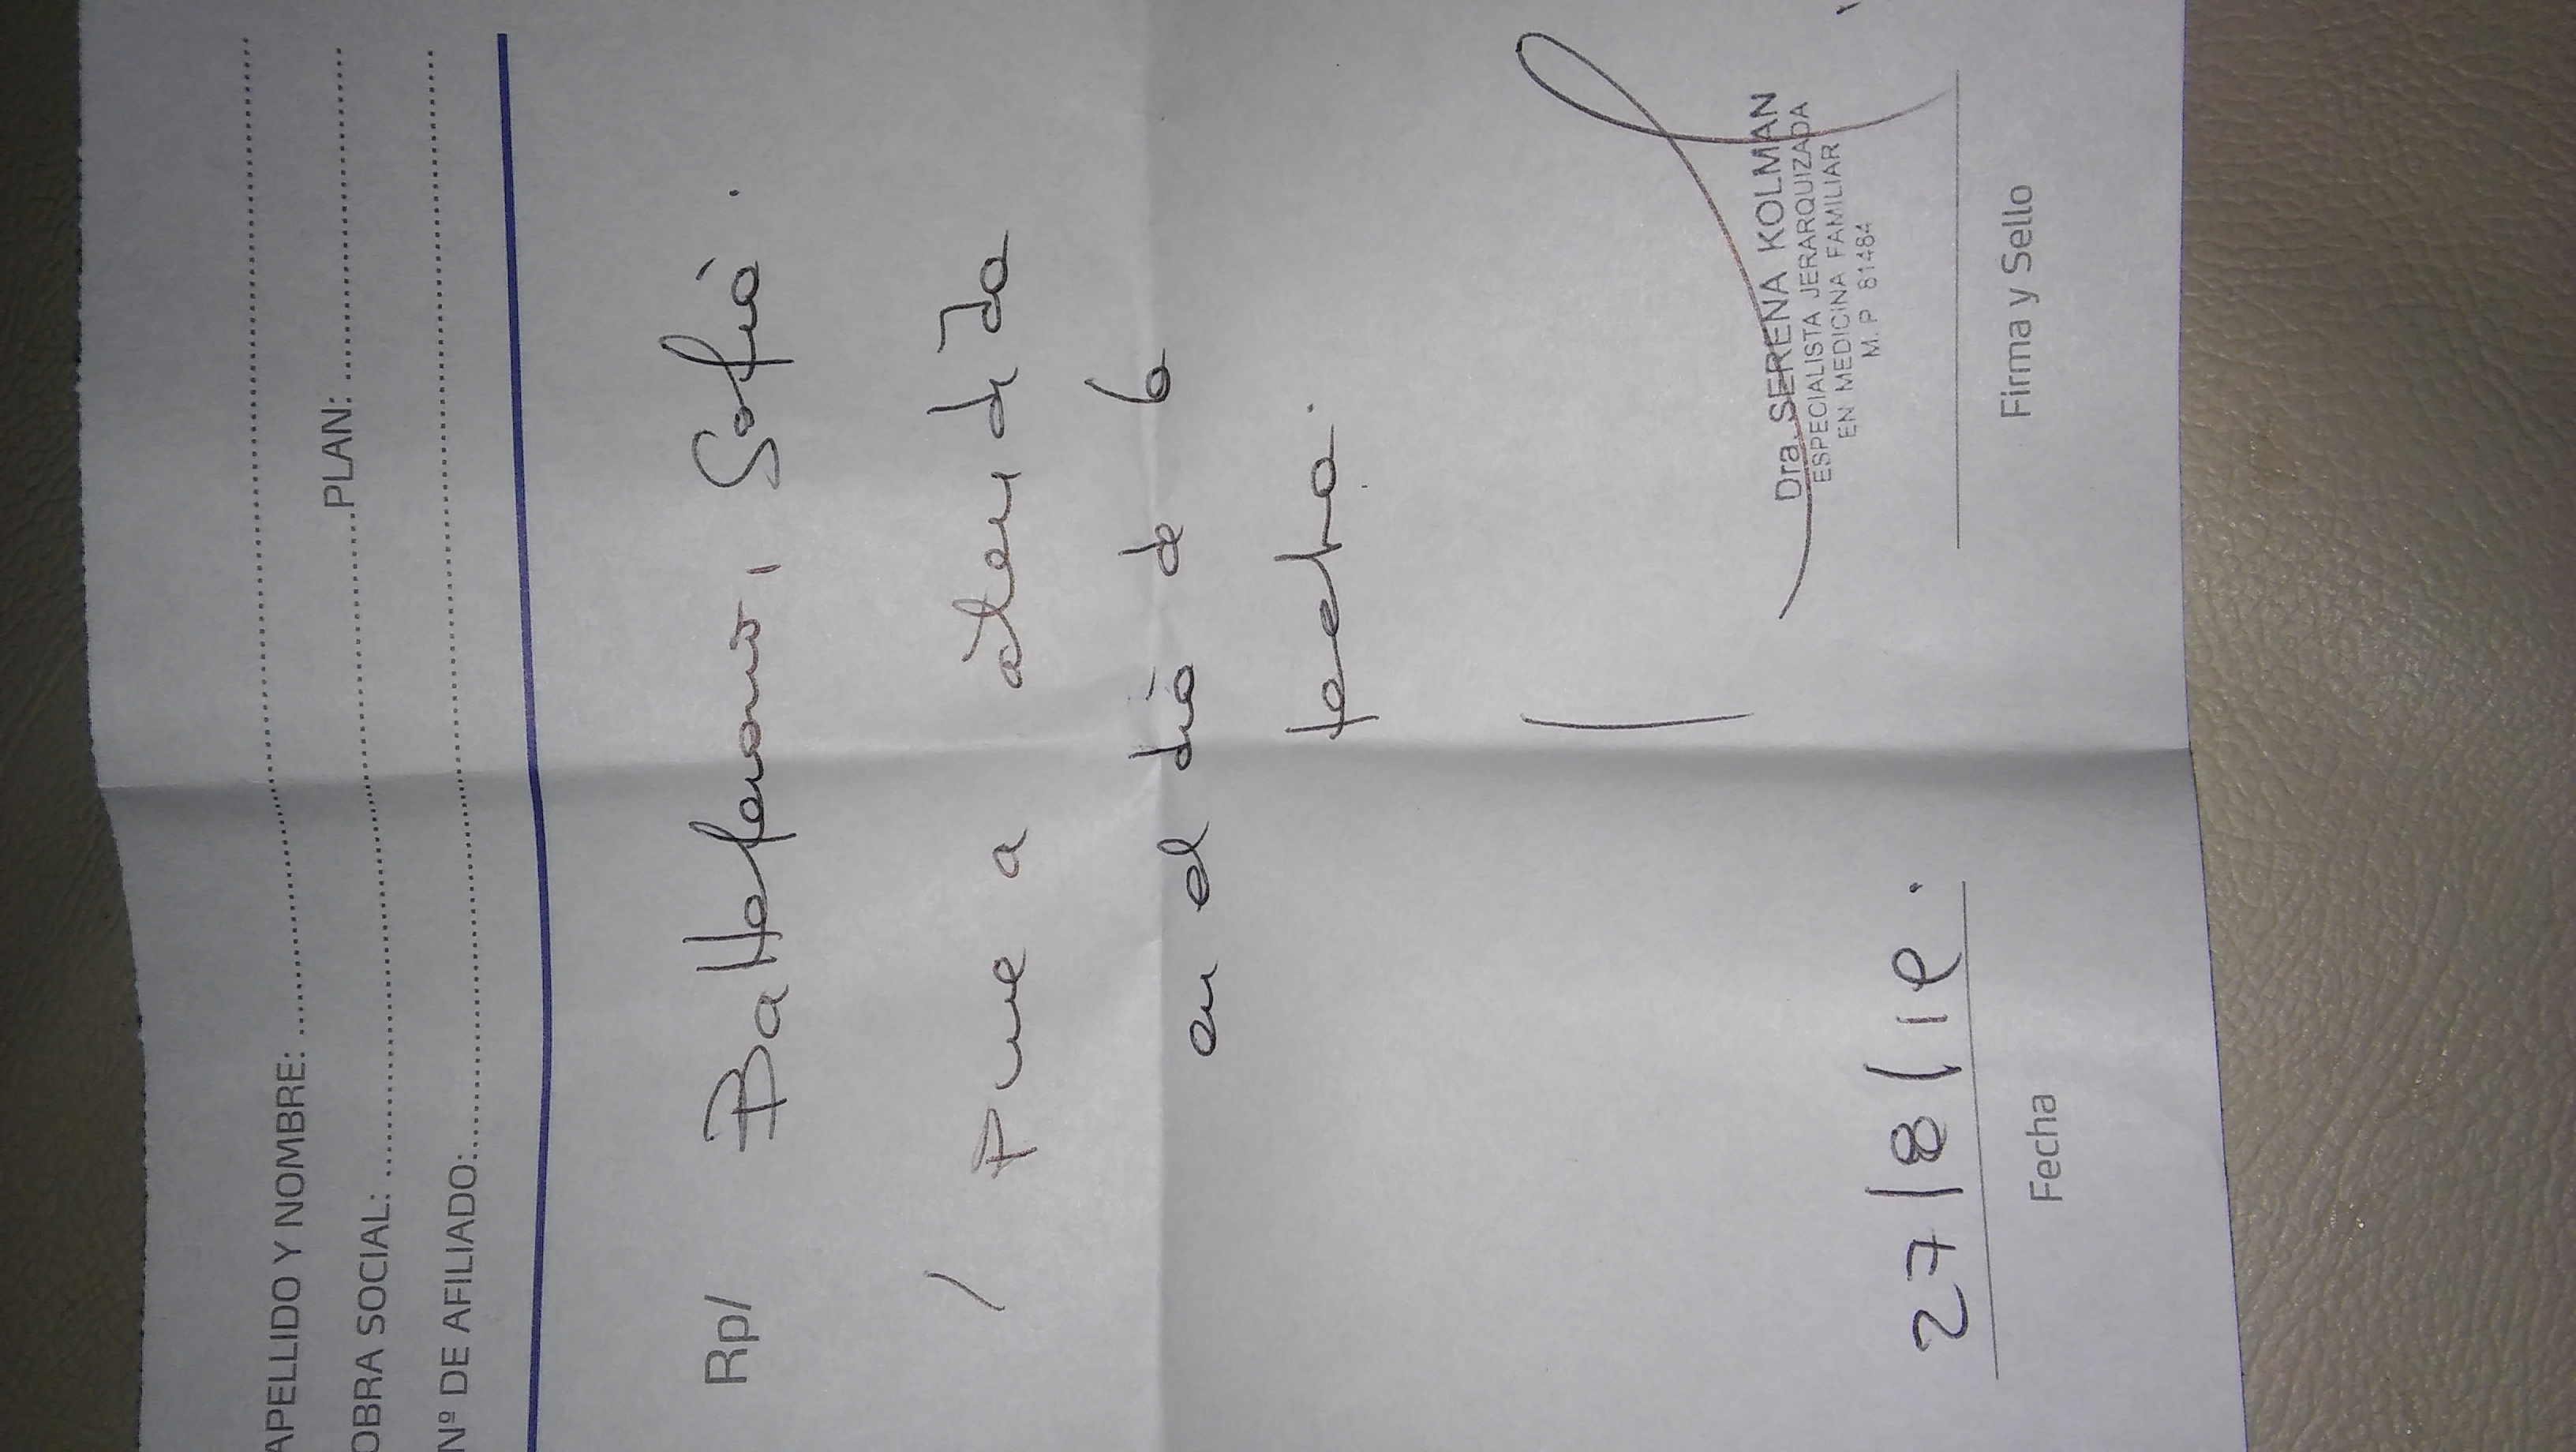 APELLIDO Y NOMBRE:
OBRA SOCIAL: PLAN:
Nº DE AFILIADO:
Rp/ Sofía.
Fue a atendida
en el día de la
fecha.
Dra. SERENA KOLMAN
ESPECIALISTA JERARQUIZADA
EN MEDICINA FAMILIAR
M.P 81484
27/8/19.
Fecha Firma y Sello